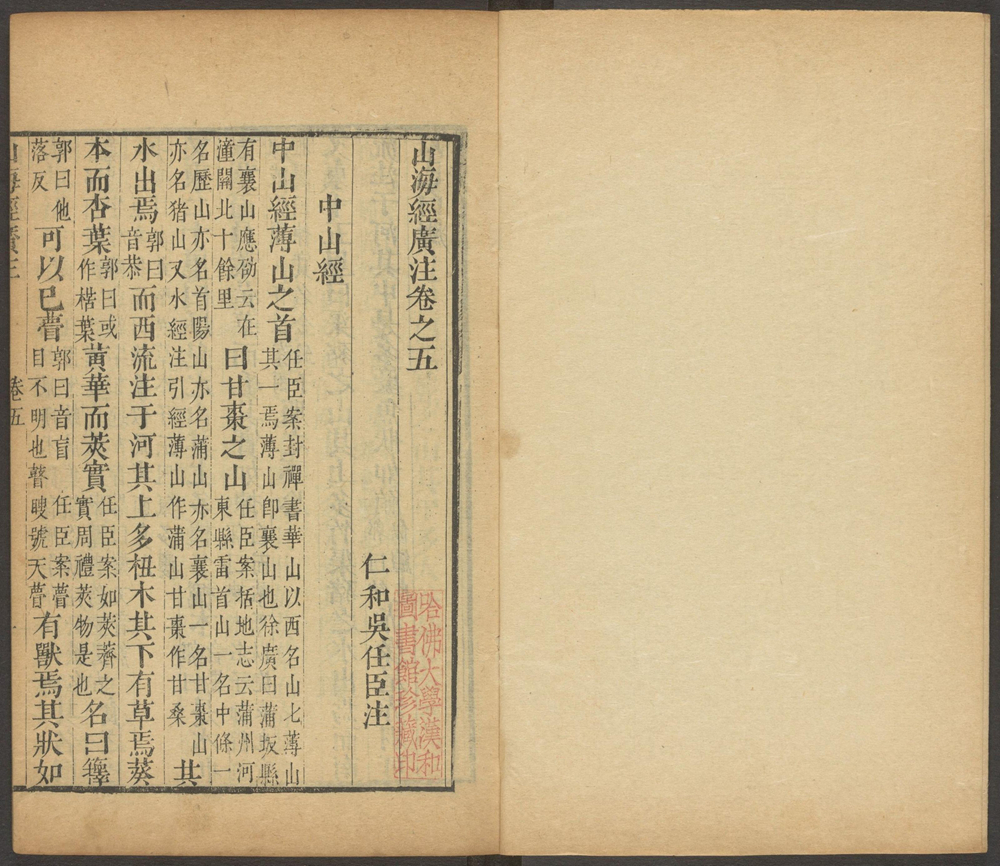 山海經廣注卷之五
仁和吳任臣注
哈佛大學漢和
圖書館珍藏印
中山經
中山經薄山之首任臣案封禪書華山以西名山七薄山
其一焉薄山卽襄山也徐廣曰蒲坂縣
有襄山應劭云在
潼關北十餘里曰甘棗之山任臣案括地志云蒲州河
東縣雷首山一名中條一
名歷山亦名首陽山亦名蒲山亦名襄山一名甘棗山
亦名猪山又水經注引經薄山作蒲山甘棗作甘桑其
水出焉郭曰
音恭而西流注于河其上多杻木其下有草焉葵
本而杏葉郭曰或
作楛葉黃華而莢實任臣案如莢薺之
實周禮莢物是也名曰籜
郭曰他
落反可以已瞢郭曰音盲
目不明也任臣案瞢
瞽瞍號天瞢有獸焉其狀如
卷五